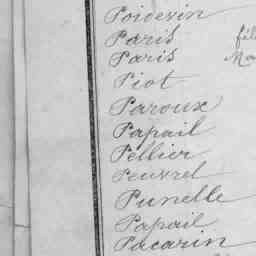 Poidevin
Paris fil
Paris Ma
Piot
Paroux
Papail
Pellier
Peuvrel
Punelle
Papail
Pacarin